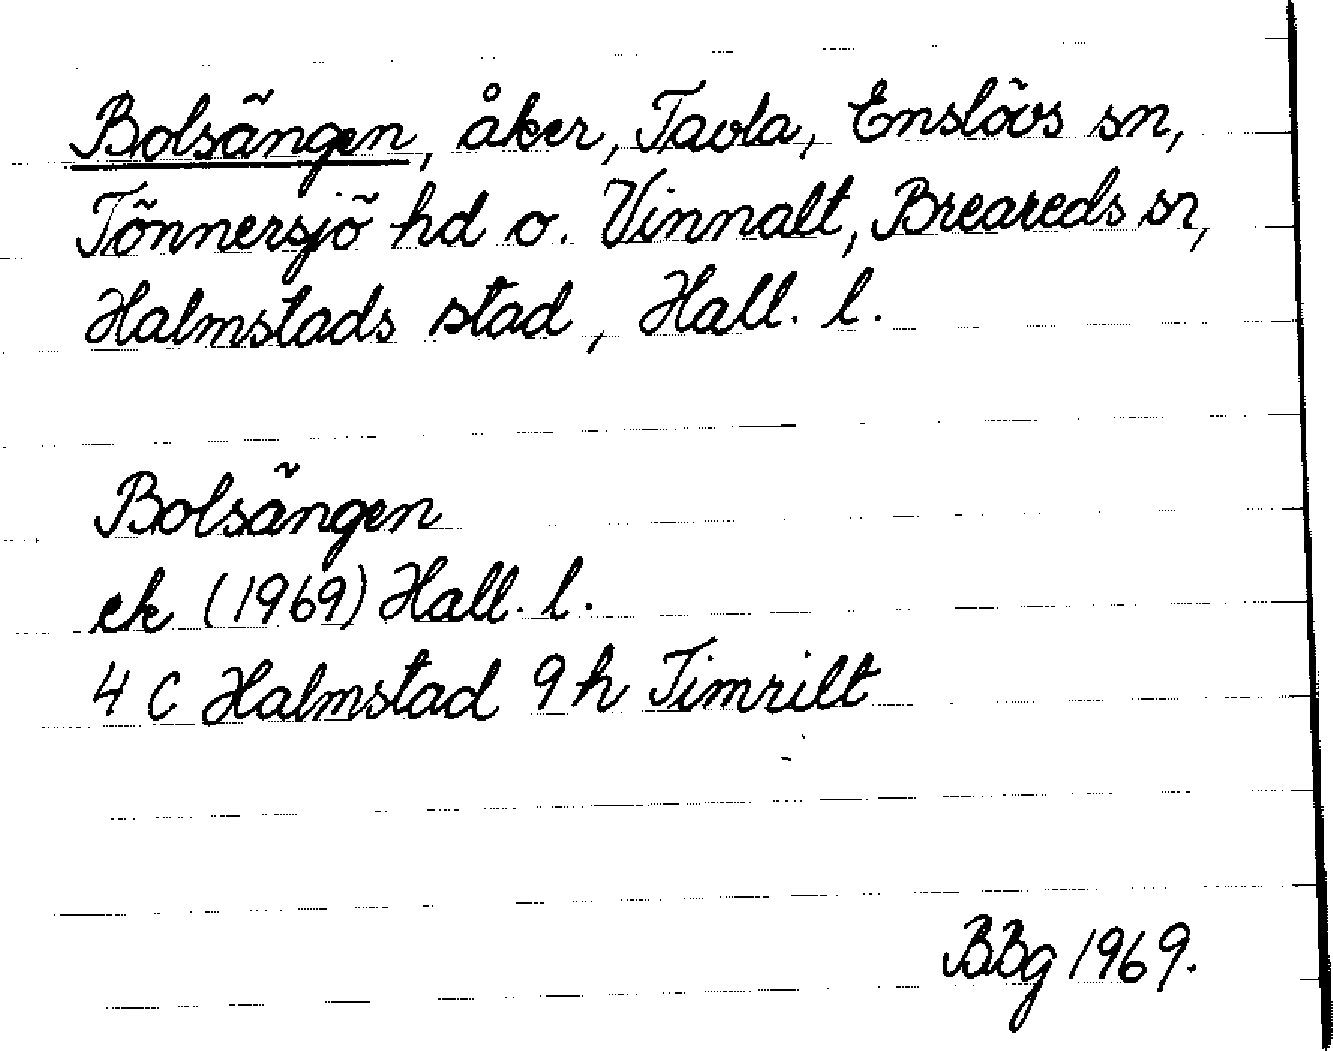 Bolsängen, åker, Tavla, Enslövs sn,
Tönnersjö hd o. Vinnalt, Breareds sn,
Halmstads stad, Hall. l.
Bolsängen
ek (1969) Hall. l.
4 C Halmstad 9 h Timrilt
BBg 1969.